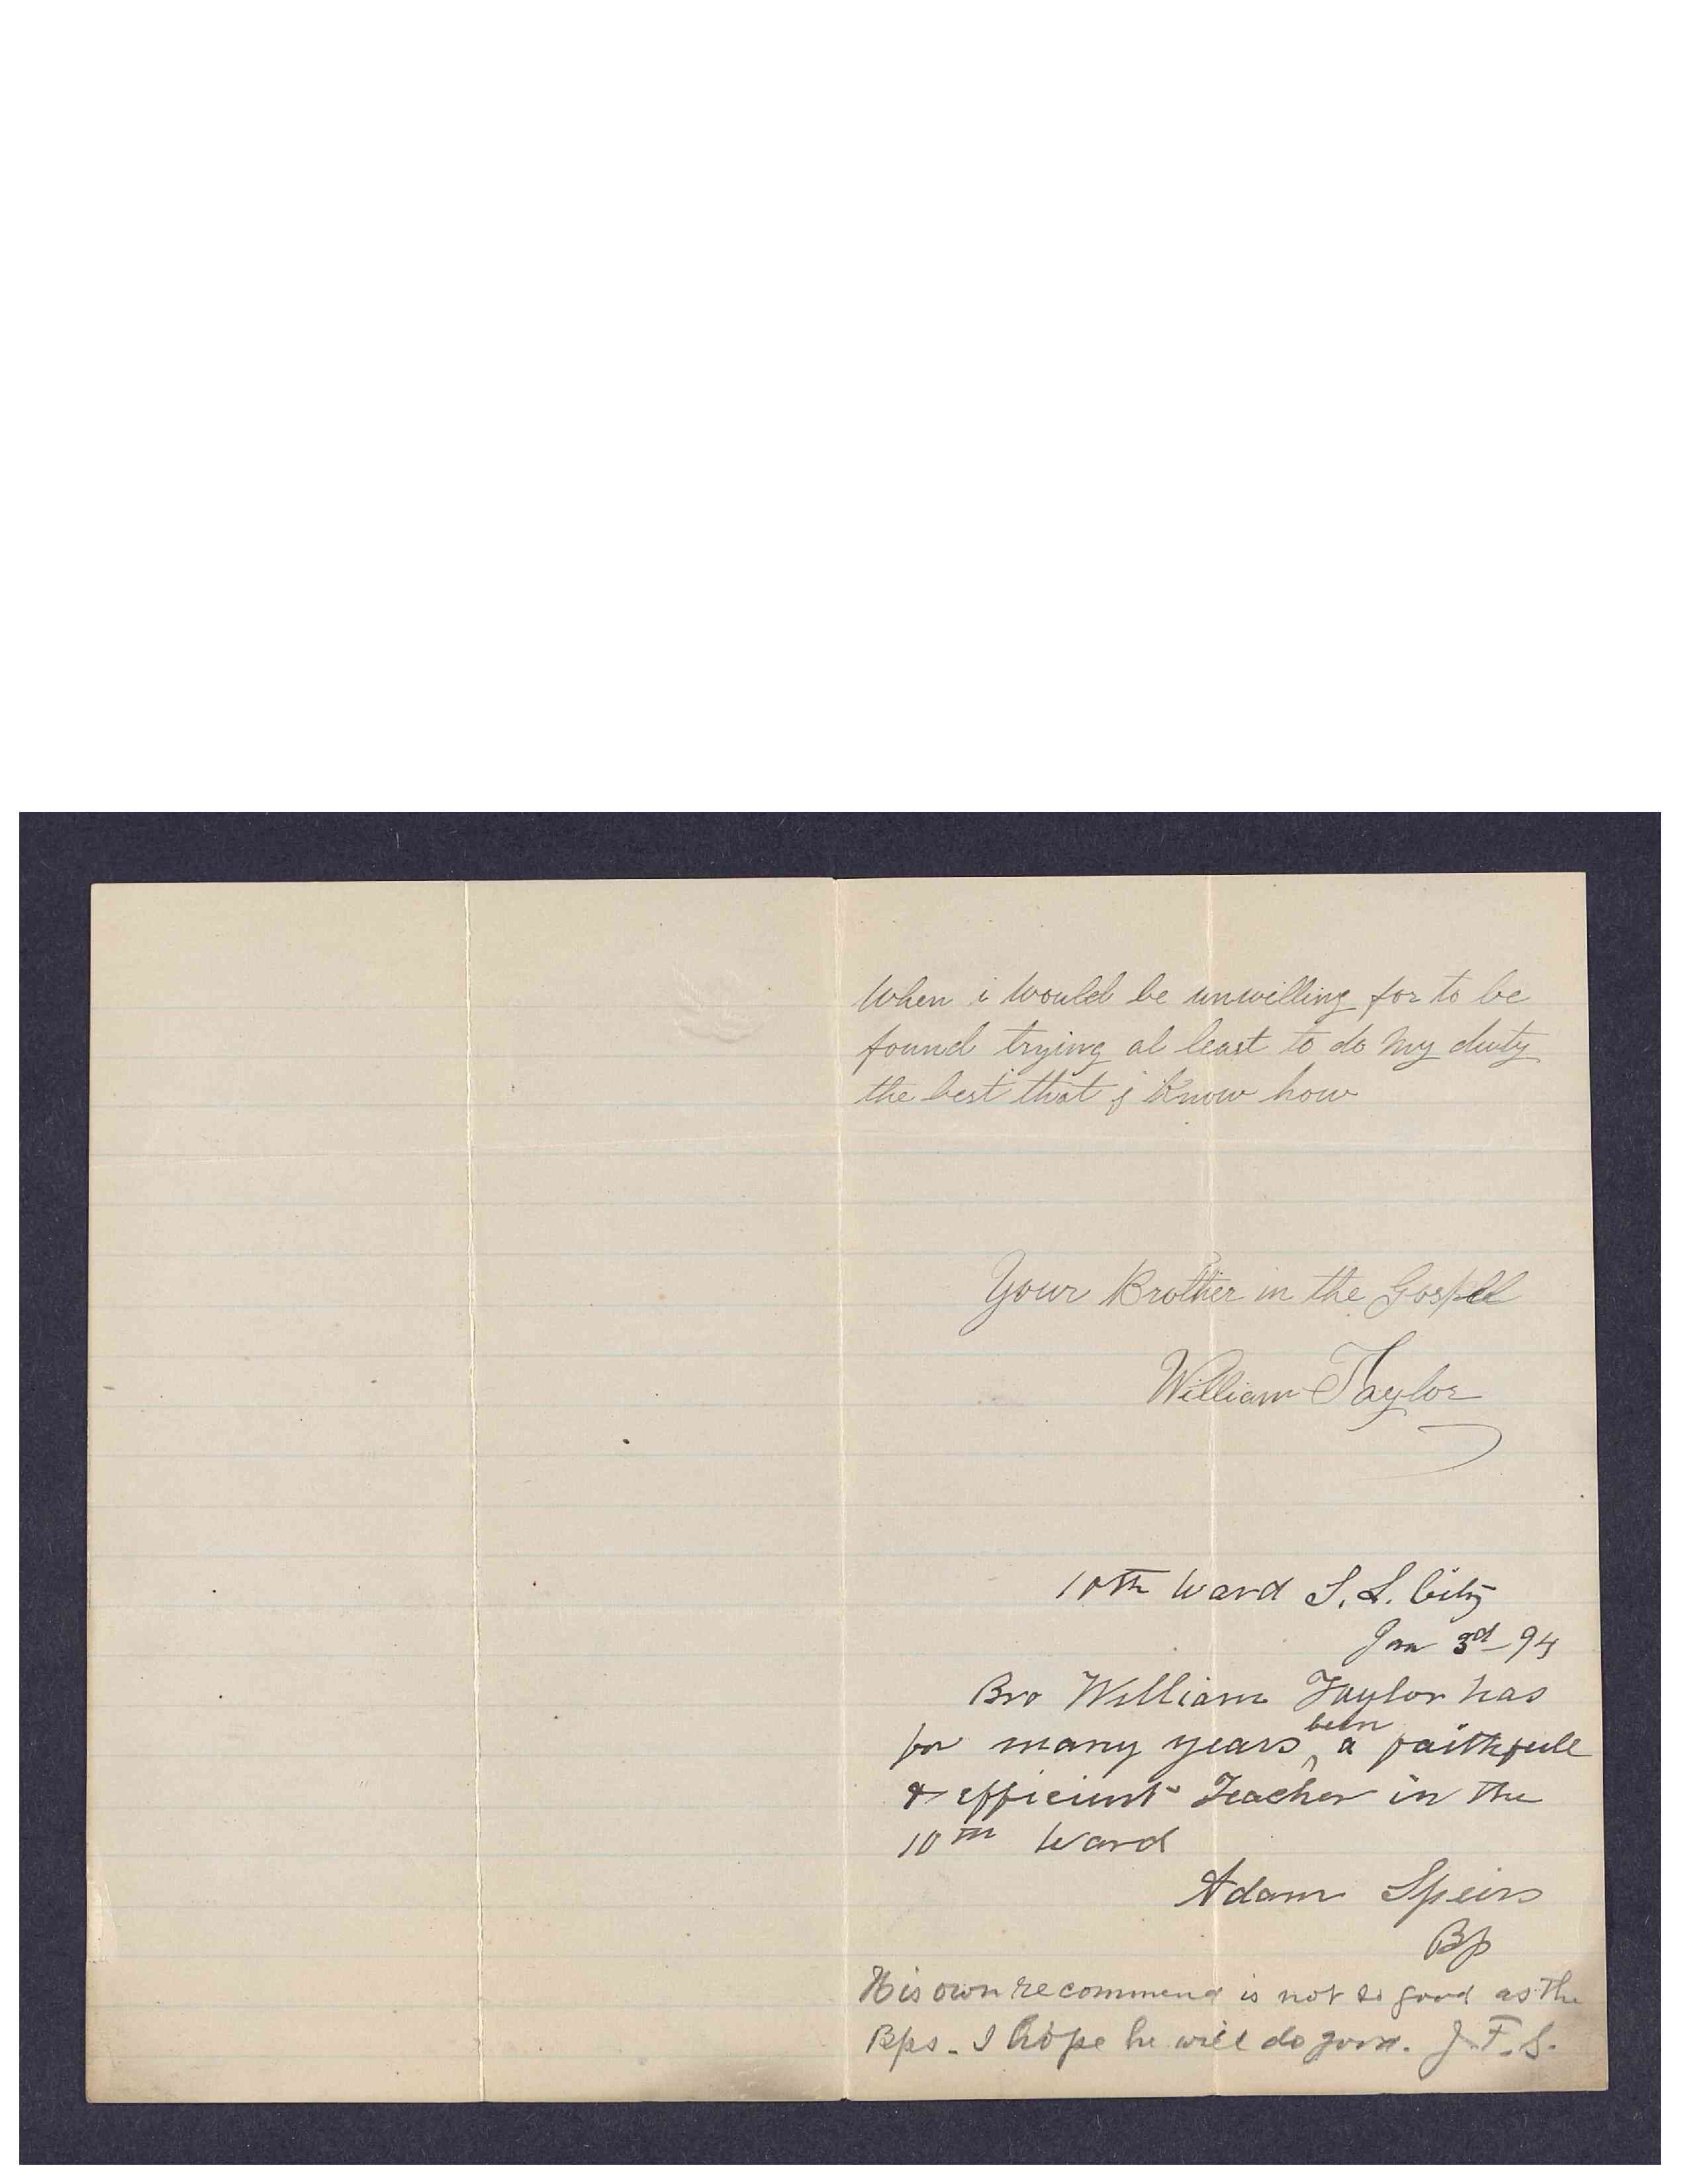 When i would be unwilling for to be
found trying at least to do my duty
the best that i Know how
Your Brother in the Gospell
William Taylor
10th Ward S. L. City
Jan 3rd 94
Bro William Taylor has
for many years been a faithfull
& efficient Teacher in the
10th Ward
Adam Speirs
Bp
His own recommend is not so good as the
Bps - I hope he will do good. J. F. S.